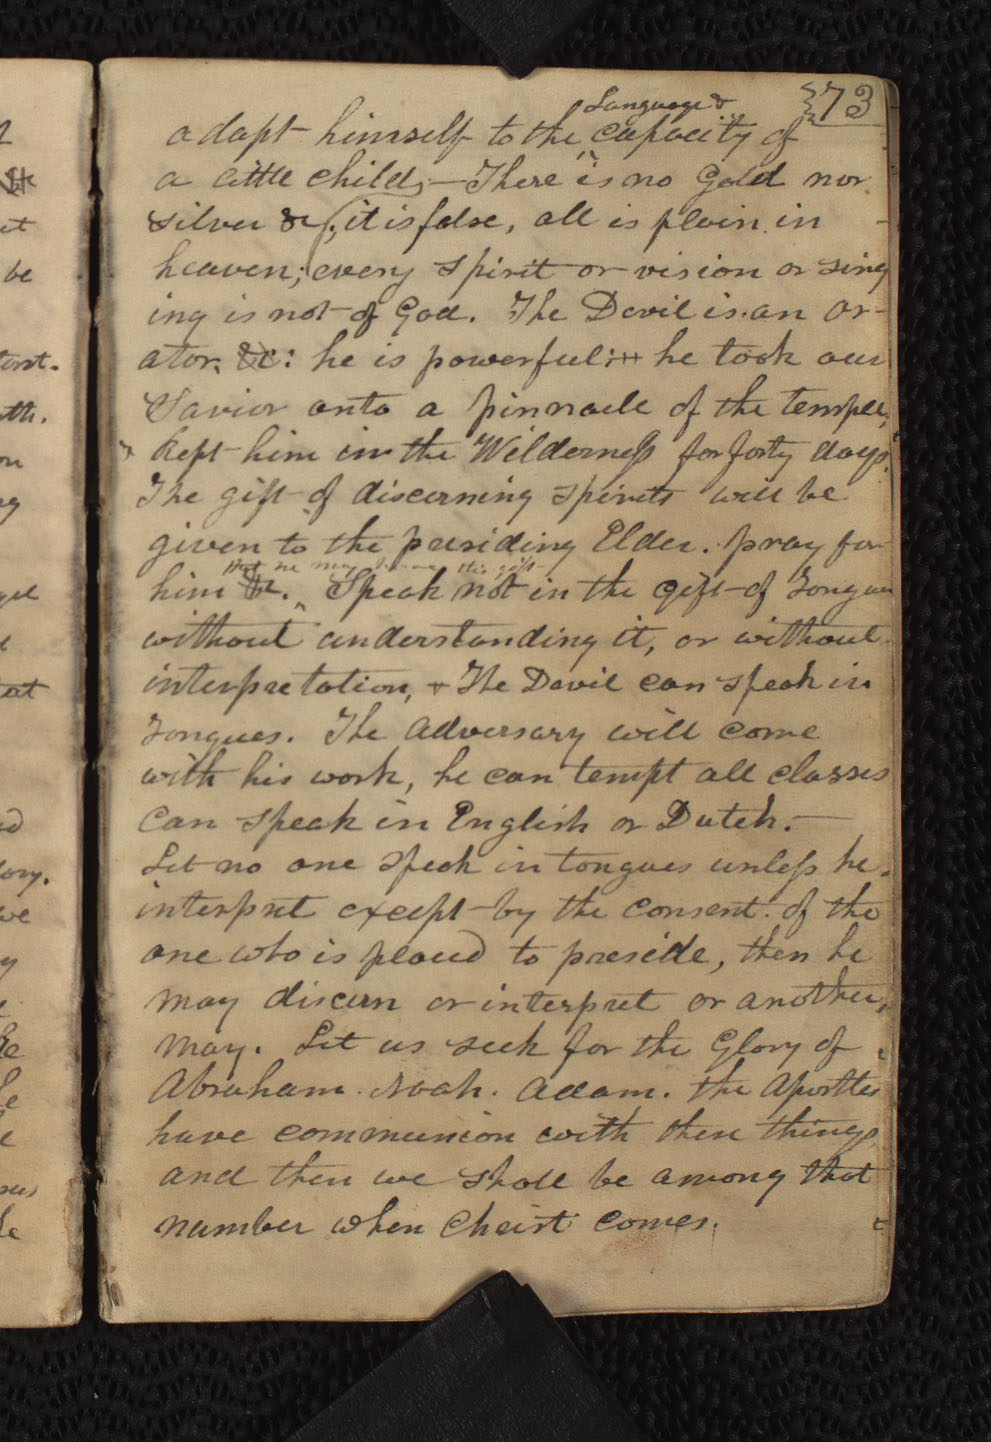 73
Language &
adapt himself to the capacity of
a little child,—There is no Gold nor
silver &c, it is false, all is plain in
heaven; every spirit or vision or sing
ing is not of God. The Devil is an or-
ator. &c: he is powerful: he took our
Savior onto a pinnacle of the temple,
& kept him in the Wilderness for forty days.
The gift of discerning spirits will be
given to the presiding Elder. pray for
that he may have this gift
him &c. Speak not in the gift of tongues
without understanding it, or without
interpretation, & The Devil can speak in
tongues. The adversary will come
with his work, he can tempt all classes
Can speak in English or Dutch.—
Let no one speak in tongues unless he
interpret except by the consent of the
one who is placed to preside, then he
may discern or interpret or another
may. Let us seek for the Glory of
Abraham. Noah. Adam. the Apostles
have communion with these things
and then we shall be among that
number when Christ comes.